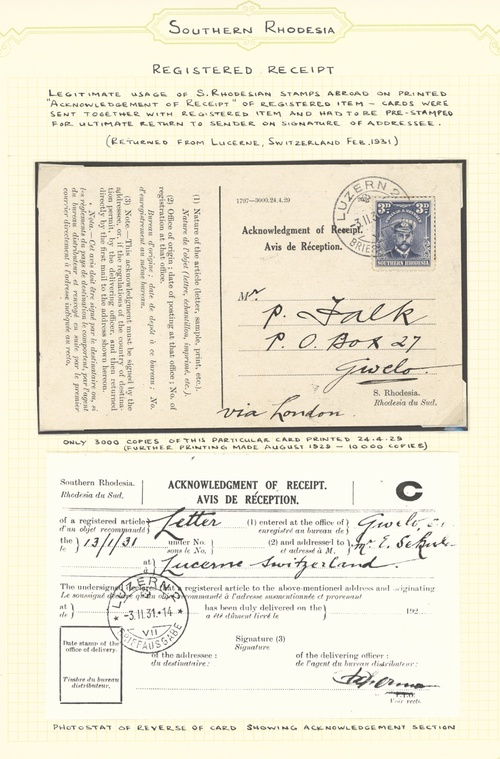 SOUTHERN RHODESIA
REGISTERED RECEIPT
LEGITIMATE USAGE OF S. RHODESIAN STAMPS ABROAD ON PRINTED
"ACKNOWLEDGEMENT OF RECEIPT" OF REGISTERED ITEM - CARDS WERE
SENT TOGETHER WITH REGISTERED ITEM AND HAD TO BE PRE-STAMPED
FOR ULTIMATE RETURN TO SENDER ON SIGNATURE OF ADDRESSEE.
(RETURNED FROM LUCERNE, SWITZERLAND FEB. 1931)
(1) Nature of the article (letter, sample, print, etc.).
Nature de l'objet (lettre, échantillon, imprimé, etc.).
(2) Office of origin; date of posting at that office; No. of
registration at that office.
Bureau d'origine; date de dépôt à ce bureau; No.
d'enregistrement au même bureau.
(3) Note.—This acknowledgment must be signed by the
addressee, or, if the regulations of the country of destina-
tion permit, by the delivering officer, and then returned
directly by the first mail to the address shown hereon.
Nota.—Cet avis doit être signé par le destinataire ou, si
les règlements du pays de destination le comportent, par l'agent
du bureau distributeur et renvoyé en suite par le premier
courrier directement à l'adresse indiquée au recto.
1797—3000.24.4.29
LUZERN 2
3.II.31
BRIEF
3D 3D
SOUTHERN RHODESIA
Acknowledgment of Receipt.
Avis de Réception.
Mr
P. Falk
P. O. Box 27
Gwelo.
S. Rhodesia.
Rhodesia du Sud.
via London.
ONLY 3000 COPIES OF THIS PARTICULAR CARD PRINTED 24.4.29
(FURTHER PRINTING MADE AUGUST 1929 - 10000 COPIES)
Southern Rhodesia.
Rhodesia du Sud.
ACKNOWLEDGMENT OF RECEIPT.
AVIS DE RÉCEPTION.
C
of a registered article
d'un objet recommandé
Letter
(1) entered at the office of
enregistré au bureau de
Gwelo,
the
le
13/1/31
under No.
sous le No,
(2) and addressed to
et adressé à M,
Mr. E.
at
à
Lucerne Switzerland.
The undersigned declares that a registered article to the above-mentioned address and originating
Le soussigné déclare qu'un objet recommandé à l'adresse susmentionnée et provenant
at
de
has been duly delivered on the
a été dûment livré le
192
LUZERN
-3.II.31.-14
VII
BRIEFAUSGABE
Date stamp of the
office of delivery
Timbre du bureau
distributeur.
Signature (3)
Signature
of the addressee :
du destinataire:
of the delivering officer :
de l'agent du bureau distributeur:
P.T.O.
Voir recto.
PHOTOSTAT OF REVERSE OF CARD SHOWING ACKNOWLEDGEMENT SECTION